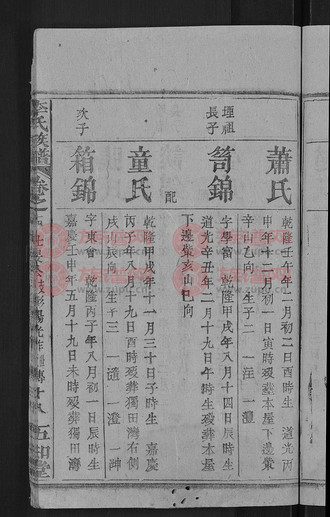 蕭氏
乾隆壬午年二月初二日酉時生 道光丙
申年十二月初一日寅時歿葬本屋下邊
辛山乙向 生子二 一淫 一澧
堙祖長子
筒錦
字學富 乾隆甲戌年十一月十四日辰時生
道光辛丑年二月十九日午時生歿葬本屋
下邊 亥山巳向
配
童氏
乾隆甲戌年十一月三十日子時生 嘉慶
丙子年八月十九日酉時歿葬獨田灣右側
戌山辰向 生子三 一道 一澄
次子
箱錦
字東會 乾隆丙子年八月初一日辰時生
嘉慶壬申年五月十九日未時歿葬獨田灣
李氏族譜 卷之